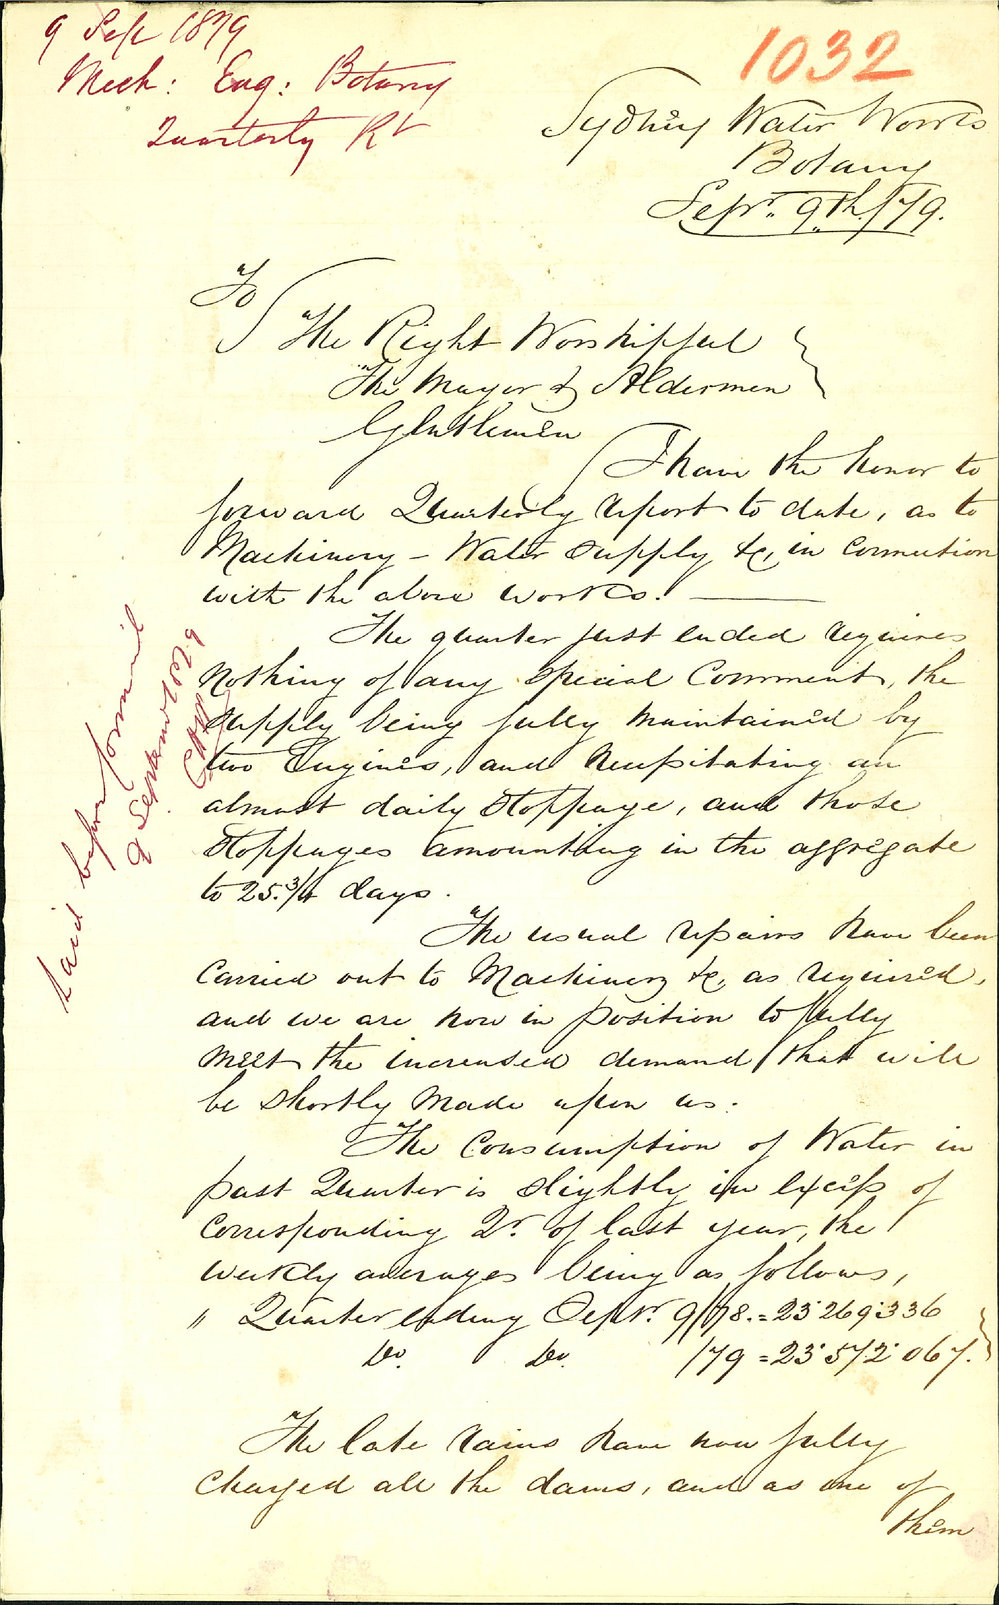 9 Sep 1879
Mech: Eng: Botany
Quarterly Rt
1032
Sydney Water Works
Botany
Sepr. 9th/79.
To
The Right Worshipful
The Mayor & Aldermen
Gentlemen
I have the honor to
forward Quarterly report to date, as to
Machinery - Water supply &c, in connection
with the above works.
The quarter just ended requires
nothing of any special comment, the
supply being fully maintained by
two Engines, and necessitating an
almost daily stoppage, and those
stoppages amounting in the aggregate
to 25.3/4 days.
The usual repairs have been
carried out to Machinery &c, as required,
and we are now in position to fully
meet the increased demand that will
be shortly made upon us.
The Consumption of Water in
past Quarter is slightly in excess of
corresponding Qr. of last year, the
weekly averages being as follows,
" Quarter ending Sepr. 9/78.=23.269.336
Do. Do. /79 =23.572.067.
The late rains have now fully
charged all the dams, and as one of
them
Laid before Council
9 September 1879